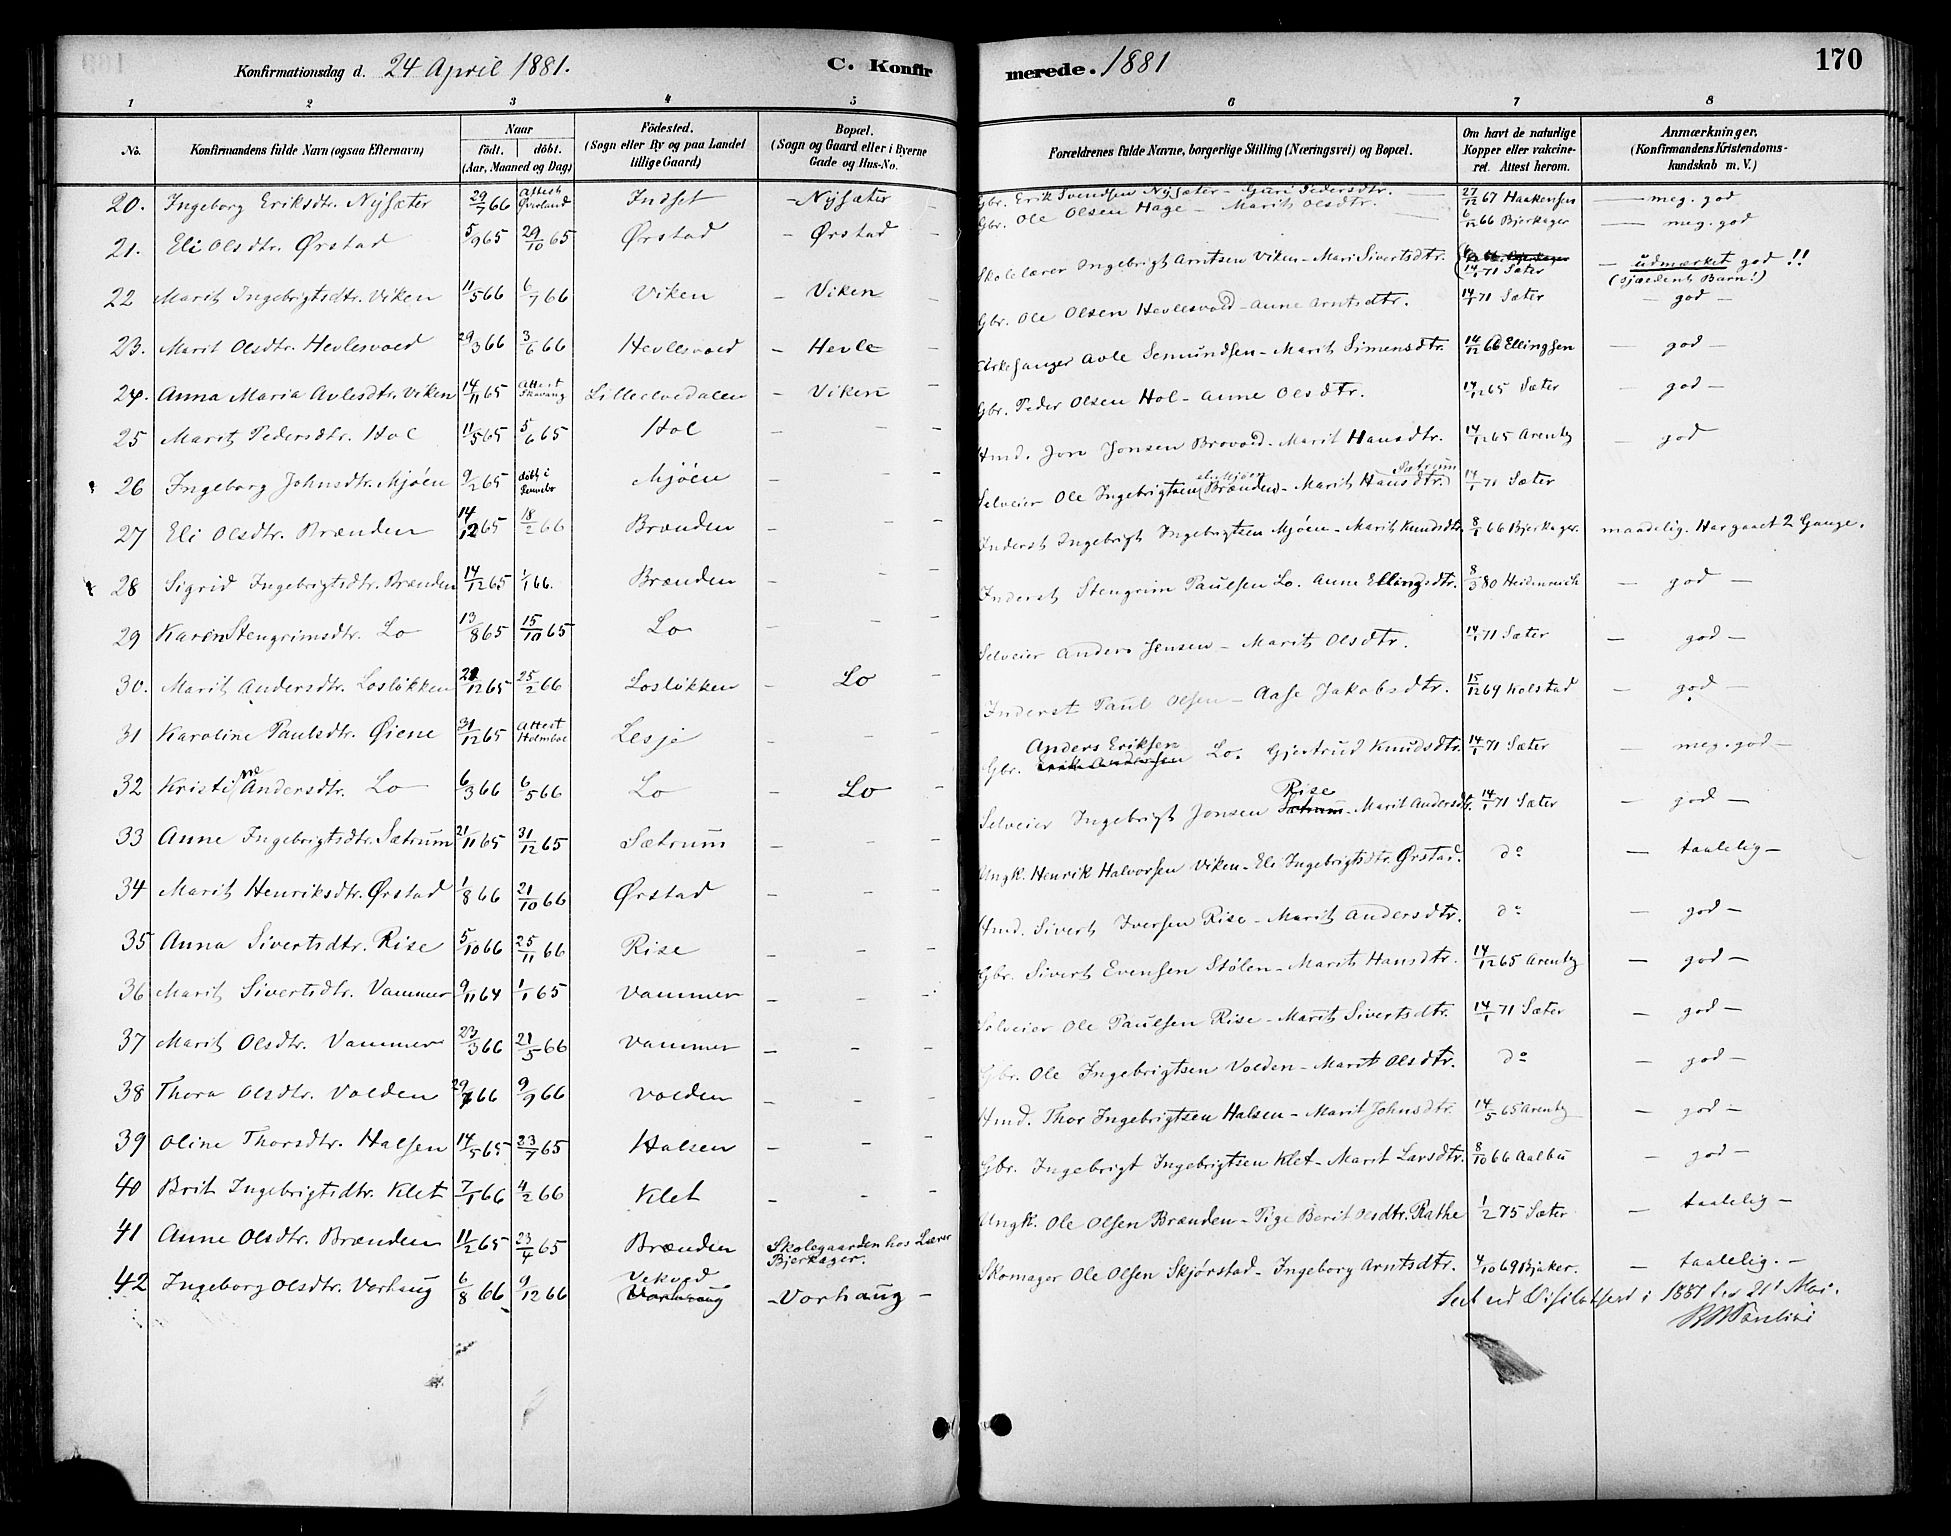 Konfirmationsdag d. 24 April 1881. C. Konfirmerede. 1881 170
1 2 3 4 5 6 7 8
No. Konfirmandens fulde Navn (ogsaa Efternavn) Naar født. døbt. (Aar, Maaned og Dag) Födested. (Sogn eller By og paa Landet tillige Gaard) Bopæl. (Sogn og Gaard eller i Byerne Gade og Hus-No. Forældrenes fulde Navne, borgerlige Stilling (Næringsvei) og Bopæl. Om havt de naturlige Kopper eller vakcineret. Attest herom. Anmærkninger. (Konfirmandens Kristendomskundskab m. V.)
20. Ingeborg Eriksdtr. Nysæter 29/7 66 Attest Indset - Nysæter - Gbr. Erik Svendsen Nysæter - Guri Pedersdtr. 27/12 67 Haakensen - meg. god
21. Eli Olsdtr. Ørstad 5/9 65 29/10 65 Ørstad - Ørstad - Gbr. Ole Olsen Hage - Marit Olsdtr. 6/12 66 Bjerkager - meg. god
22 Marit Ingebrigtsdtr. Viken 11/5 66 6/7 66 Viken - Viken - Skolelærer Ingebrigt Arntsen Viken - Mari Sivertsdtr. 14/1 71 Sæter - udmærket god !! (sjældent Barn!)
23. Marit Olsdtr. Hevlesvold 29/3 66 3/6 66 Hevlesvold - Hevle - Gbr. Ole Olsen Hevlesvold - Anne Arntsdtr. 14/1 71 Sæter - god -
24. Anna Maria Avlesdtr. Viken 14/11 65 Attest Lilleelvedalen - Viken - Kirkesanger Avle Semundsen - Marit Simensdtr. 14/12 66 Ellingsen - god -
25 Marit Pedersdtr. Hol 11/5 65 5/6 65 Hol - - - Gbr. Peder Olsen Hol - Anne Olsdtr. 14/12 65 Sæter - god -
26 Ingeborg Johnsdtr. Mjöen 9/2 65 döbt i Mjöen - - Hmd. Jon Jonsen Brovold - Marit Hansdtr. 14/12 65 Arentz - god
27 Eli Olsdtr. Brænden 14/12 65 18/2 66 Brænden - - - Selveier Ole Ingebrigtsen (Brænden - Marit Hansdtr.) Sætrum 14/1 71 Sæter
28 Sigrid Ingebrigtsdtr. Brænden 14/12 65 1/1 66. Brænden - - - Inderst Ingebrigt Ingebrigtsen Mjöen - Marit Knudsdtr. 8/1 66 Bjerkager. maadelig. Har gaaet 2 Gange.
29 Karen Stengrimsdtr. Lo 13/8 65 15/10 65 Lo - - - Inderst Stengrim Paulsen Lo. Anne Ellingsdtr. 8/3 80 Heidenreich - god -
30. Marit Andersdtr. Loslökken 21/12 65 25/2 66 Loslökken - Lo - Selveier Anders Jensen - Marit Olsdtr. 14/1 71 Sæter - god -
31 Karoline Paulsdtr. Öiene 31/12 65 Attest Holmboe Lesje - - - Inderst Paul Olsen - Aase Jakobsdtr. 15/12 69 Kolstad - god -
32 Kristine Andersdtr. Lo 6/3 66 6/5 66 Lo - Lo - Gbr. Anders Eriksen Lo. Gjertrud Knudsdtr. 14/1 71 Sæter - meg. god -
33 Anne Ingebrigtsdtr. Sætrum 21/11 65 31/12 65 Sætrum - - - Selveier Ingebrigt Jonsen Rise Sætrum - Marit Andersdtr. 14/1 71 Sæter - god -
34 Marit Henriksdtr. Ørstad 1/8 66 21/10 66 Ørstad - - - Ungk. Henrik Halvorsen Viken - Eli Ingebrigtsdtr. Ørstad. do - taalelig -
35 Anna Sivertsdtr. Rise 5/10 66 25/11 66 Rise - - - Hmd. Sivert Iversen Rise - Marit Andersdtr. do - god -
36 Marit Sivertsdtr. Vammer 9/11 64 1/1 65 Vammer - - - Gbr. Sivert Evensen Stölen - Marit Hansdtr. 14/12 65 Arentz - god -
37 Marit Olsdtr. Vammer 23/3 66 21/5 66 Vammer - - - Selveier Ole Paulsen Rise - Marit Sivertsdtr. 14/1 71 Sæter - god -
38 Thora Olsdtr. Volden 29/7 66 9/9 66 Volden - - - Gbr. Ole Ingebrigtsen Volden - Marit Olsdtr. do - god -
39 Oline Thorsdtr. Halsen 14/5 65 23/7 65 Halsen - - - Hmd. Thor Ingebrigtsen Halsen - Marit Johnsdtr. 14/5 65 Arentz - god -
40 Brit Ingebrigtsdtr. Klet 7/1 66 4/2 66 Klet - - - Gbr. Ingebrigt Ingebrigtsen Klet - Marit Larsdtr. 8/10 66 Aalbu - god -
41 Anne Olsdtr. Brænden 11/2 65 23/4 65 Brænden Skolegaarden hos Lærer Bjerkager. Ungk. Ole Olsen Brænden - Pige Berit Olsdtr. Rathe 1/2 75 Sæter - taalelig -
42 Ingeborg Olsdtr. Vorhaug 6/8 66 9/12 66 Vekvod (Vorhaug - Vorhaug - Skomager Ole Olsen Skjørstad - Ingeborg Arntsdtr. 4/10 69 Bjaker. - taalelig. -
Seet ved Visitatsen i 1881 den 21de Mai.